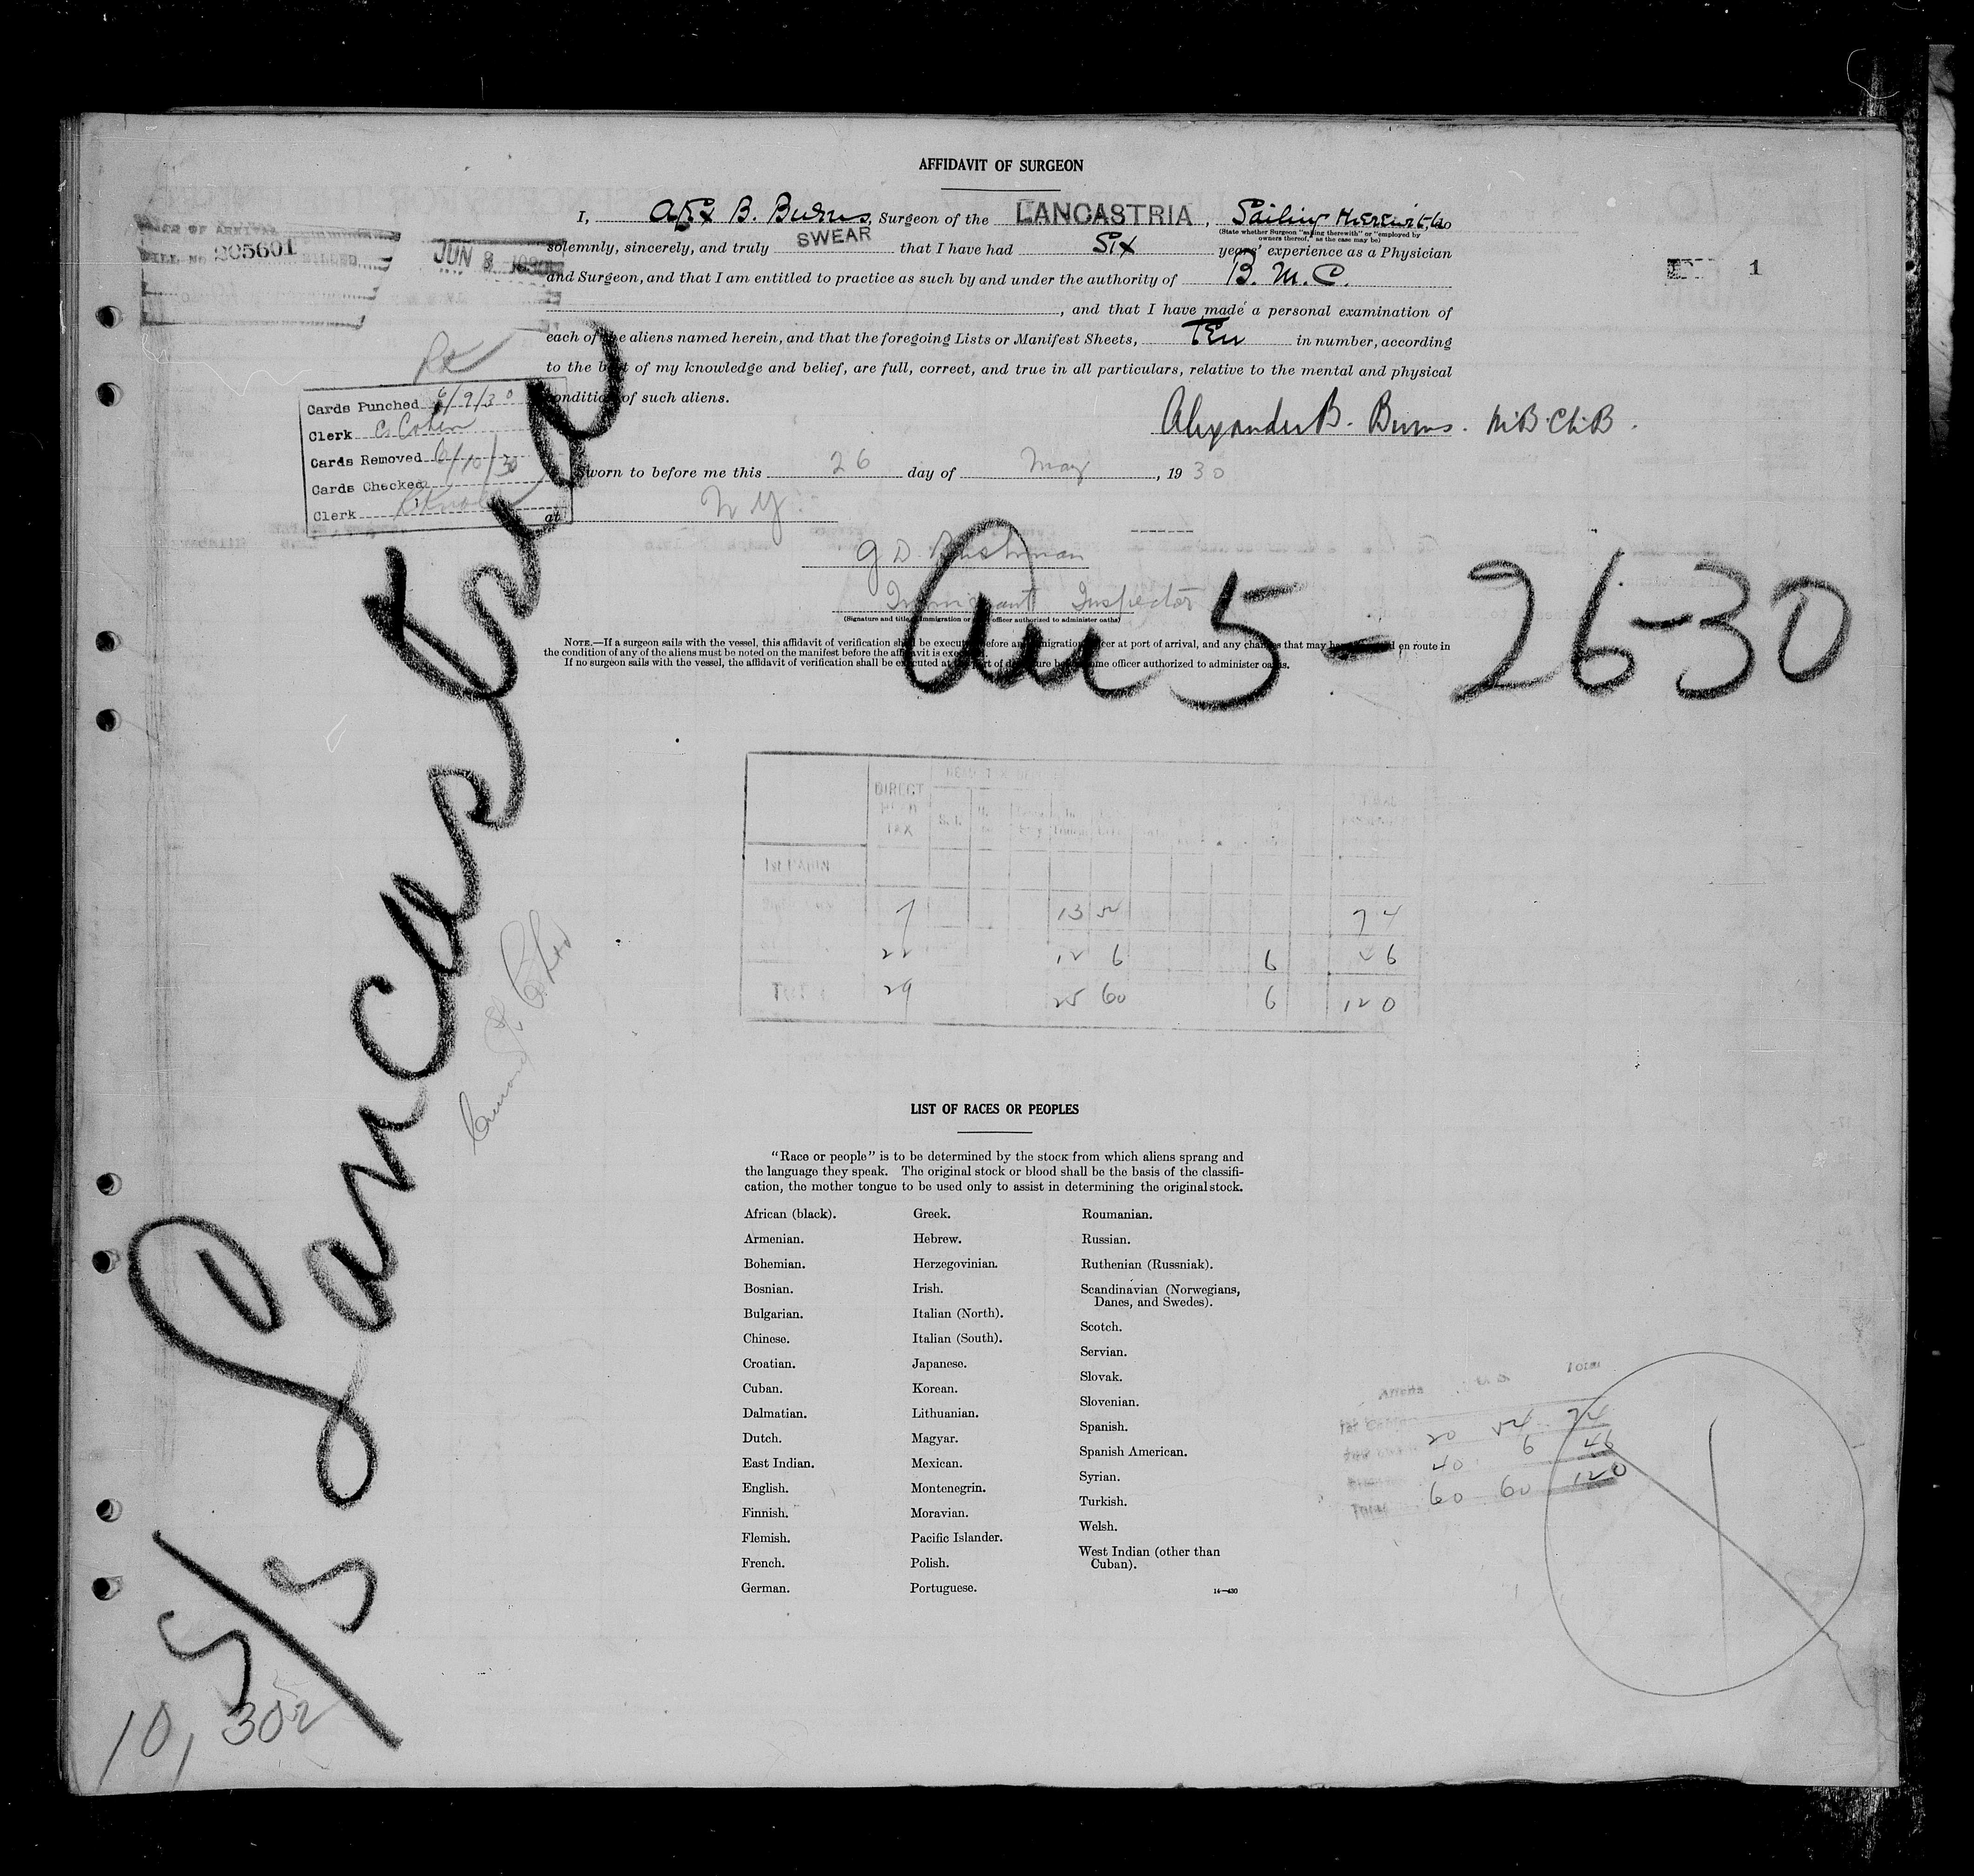 AFFIDAVIT OF SURGEON
I, Alex B. Burns, Surgeon of the LANCASTRIA, Sailing Therewith, do
(State whether Surgeon "sailing therewith" or "employed by
owners thereof," as the case may be)
solemnly, sincerely, and truly SWEAR that I have had Six years' experience as a Physician
and Surgeon, and that I am entitled to practice as such by and under the authority of B. M. C.
, and that I have made a personal examination of
each of the aliens named herein, and that the foregoing Lists or Manifest Sheets, Ten in number, according
to the best of my knowledge and belief, are full, correct, and true in all particulars, relative to the mental and physical
condition of such aliens.
Alexander B. Burns. M.B. Ch.B.
Sworn to before me this 26 day of May, 1930
at N Y.
Immigrant Inspector
(Signature and title of immigration or officer authorized to administer oaths)
NOTE.—If a surgeon sails with the vessel, this affidavit of verification shall be executed before an immigration officer at port of arrival, and any changes that may have en route in
the condition of any of the aliens must be noted on the manifest before the affidavit is executed.
If no surgeon sails with the vessel, the affidavit of verification shall be executed at the port of departure before some officer authorized to administer oaths.
BILL NO 205601 BILLED
JUN 3 1930
1
Cards Punched 6/9/30
Clerk C. Cohen
Cards Removed 6/10/30
Cards Checked
Clerk
S/S Lancastria
Arr 5-26-30
DIRECT
HEAD
TAX
1st CABIN
7 13 54 74
22 12 6 6 46
29 25 60 6 120
LIST OF RACES OR PEOPLES
"Race or people" is to be determined by the stock from which aliens sprang and
the language they speak. The original stock or blood shall be the basis of the classifi-
cation, the mother tongue to be used only to assist in determining the original stock.
African (black).
Armenian.
Bohemian.
Bosnian.
Bulgarian.
Chinese.
Croatian.
Cuban.
Dalmatian.
Dutch.
East Indian.
English.
Finnish.
Flemish.
French.
German.
Greek.
Hebrew.
Herzegovinian.
Irish.
Italian (North).
Italian (South).
Japanese.
Korean.
Lithuanian.
Magyar.
Mexican.
Montenegrin.
Moravian.
Pacific Islander.
Polish.
Portuguese.
Roumanian.
Russian.
Ruthenian (Russniak).
Scandinavian (Norwegians,
Danes, and Swedes).
Scotch.
Servian.
Slovak.
Slovenian.
Spanish.
Spanish American.
Syrian.
Turkish.
Welsh.
West Indian (other than
Cuban).
14—430
Aliens Total
20 54 74
40 6 46
Total 60 60 120
10,302